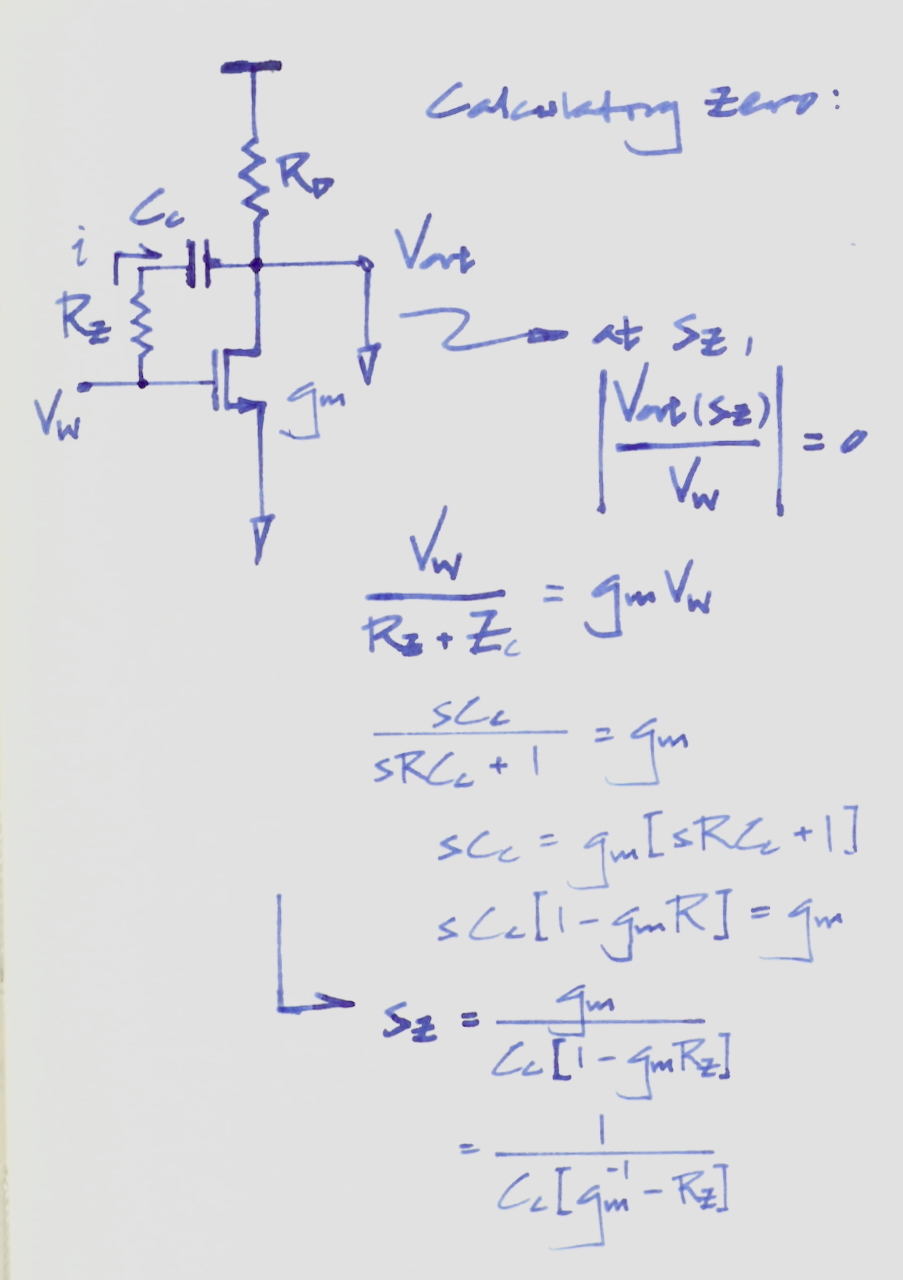 Calculating zero:
R_D
C_c
i
V_out
R_z
at s_z,
g_m
V_in
|V_out(s_z) / V_in| = 0
V_in / (R_z + Z_c) = g_m V_in
sC_c / (sRC_c + 1) = g_m
sC_c = g_m[sRC_c + 1]
sC_c[1 - g_mR] = g_m
s_z = g_m / C_c[1 - g_mR_z]
= 1 / C_c[g_m^-1 - R_z]